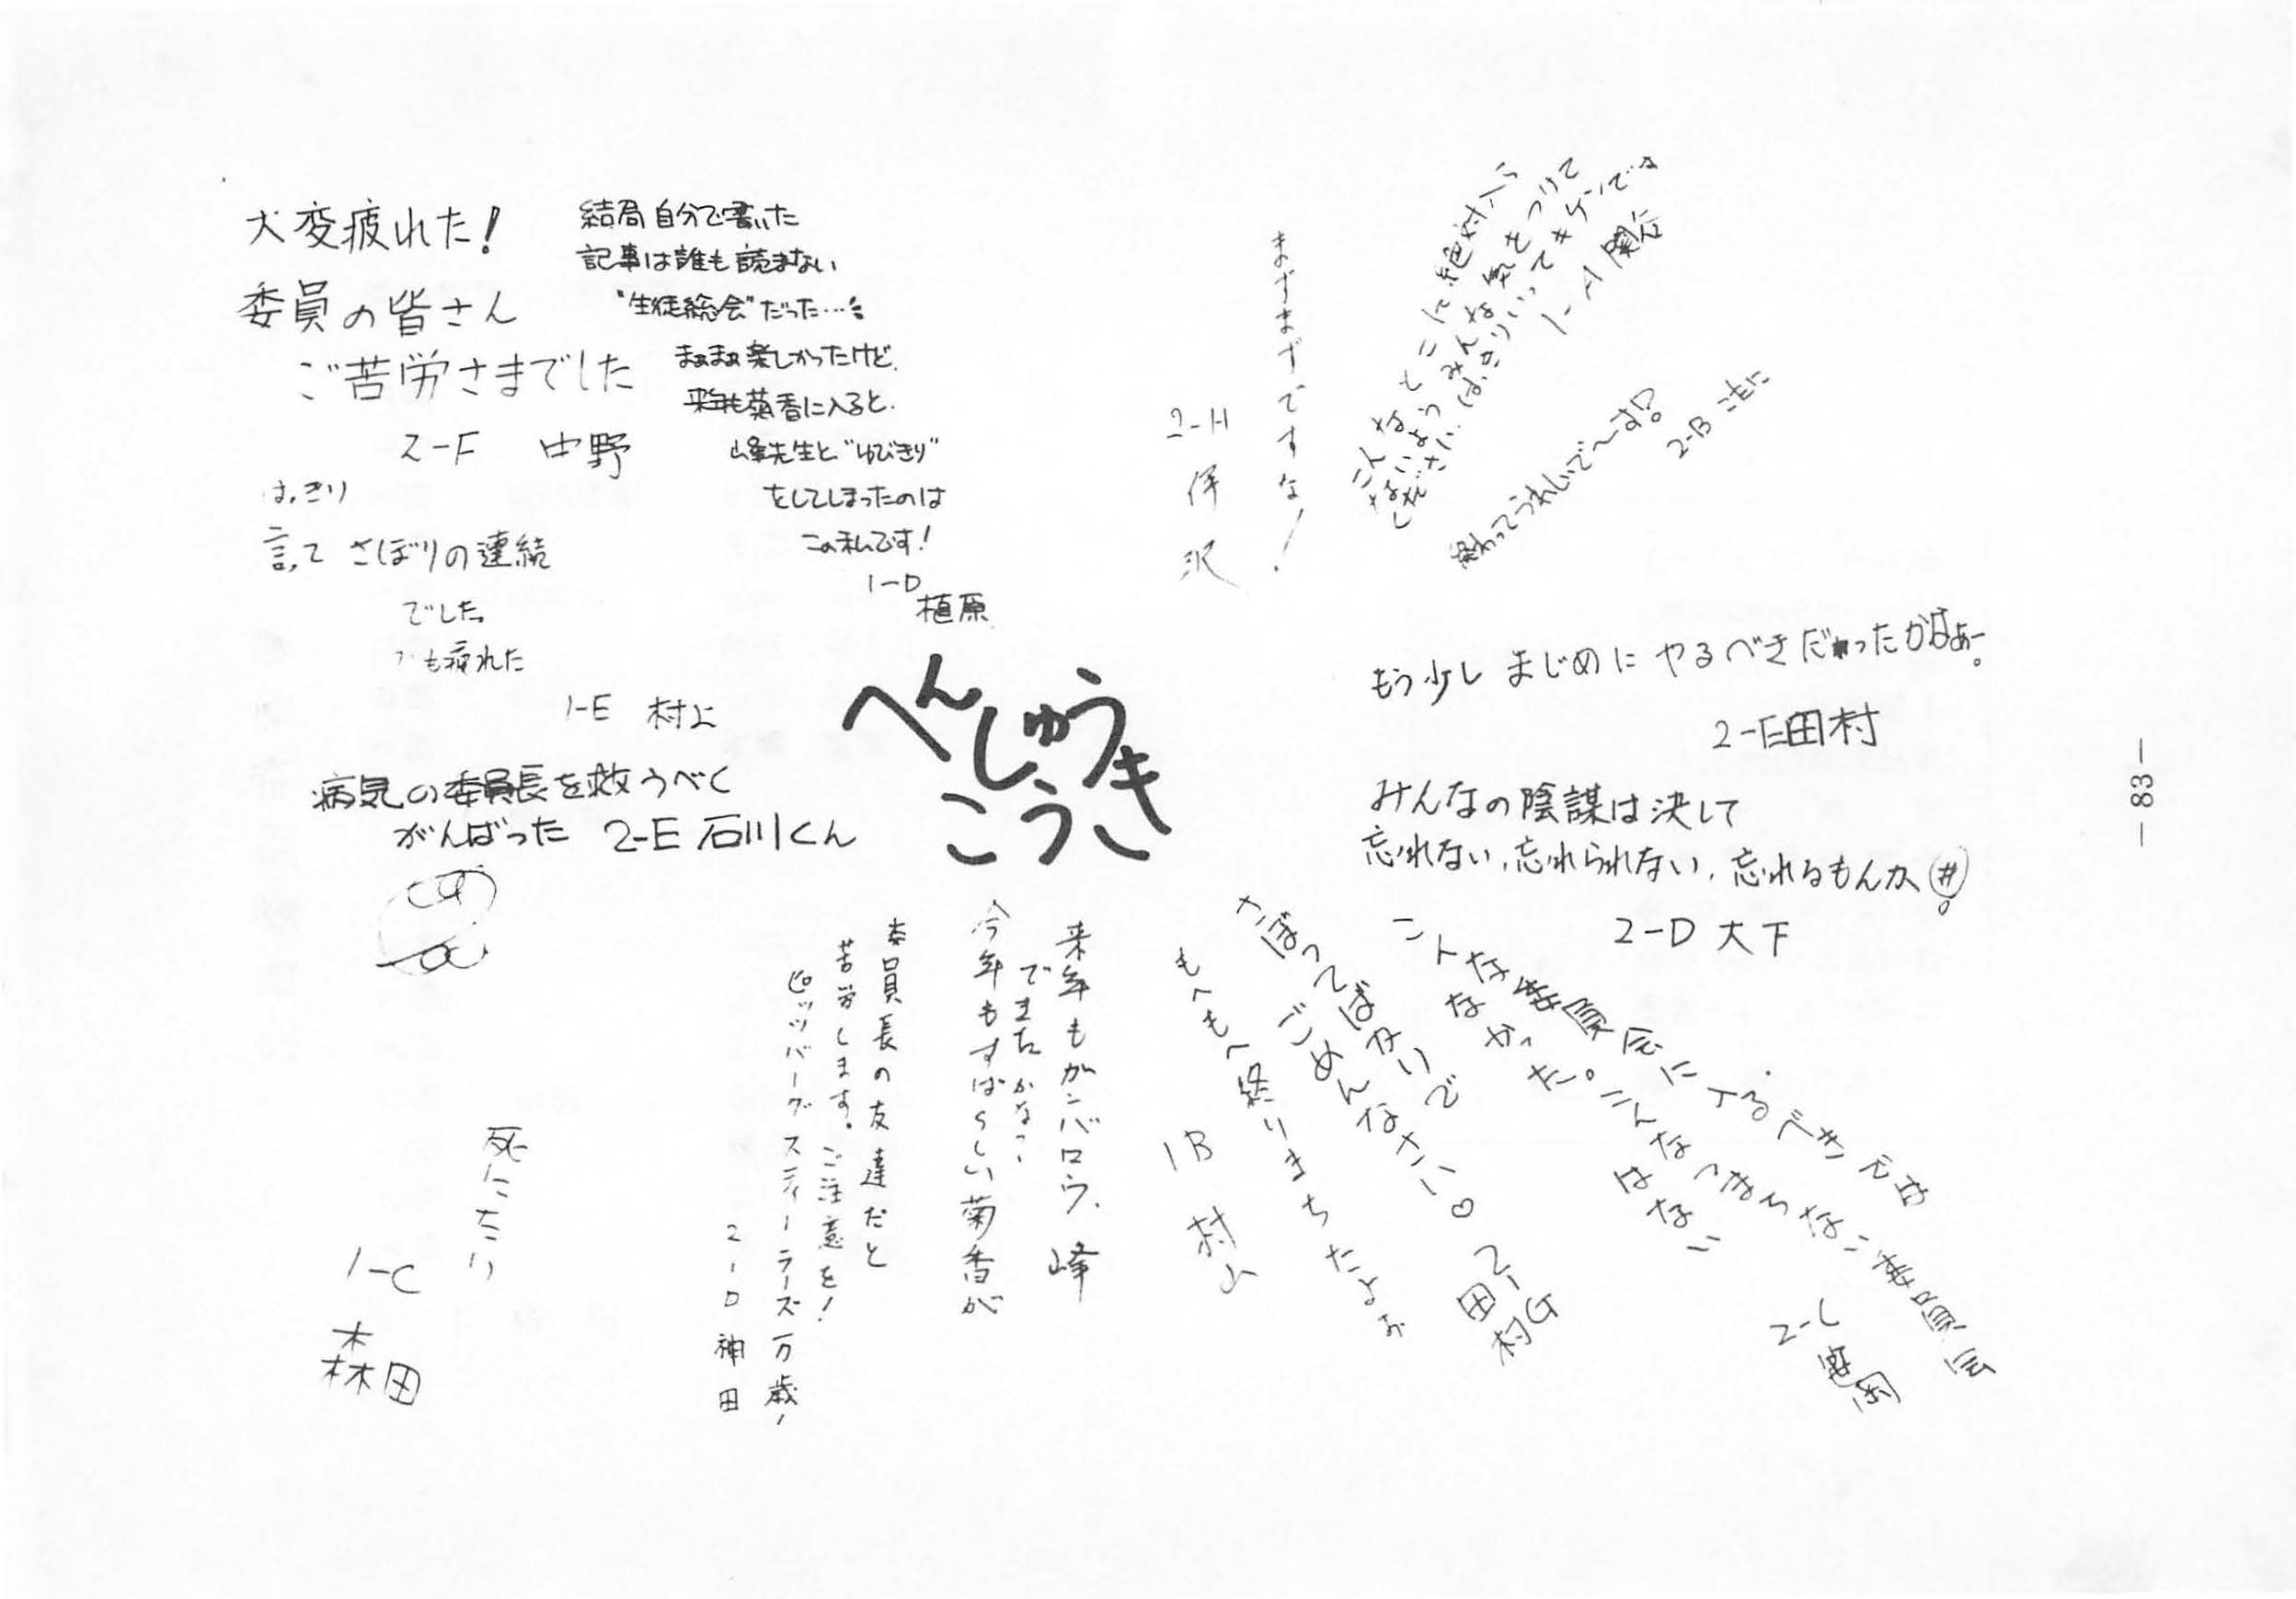 大変疲れた!
委員の皆さん
ご苦労さまでした
2-F 中野
結局自分で書いた
記事は誰も読まない
"生徒総会"だった…
まぁまぁ楽しかったけど、
来年も菊香に入ると、
峰先生と"ゆびきり"
をしてしまったのは
この私です!
1-D
植原
はっきり
言って さぼりの連続
でした。
も疲れた
1-E 村上
病気の委員長を救うべく
がんばった 2-E 石川くん
へんしゅう
こうき
まずまずですな!
2-H
こんなとこに絶対入ら
ないようみんな気をつけて
ください。
1-A 関谷
終わってうれしいで〜す!
2-B
もう少し まじめに やるべきだったかなぁー。
2-E田村
みんなの陰謀は決して
忘れない、忘れられない、忘れるもんか
2-D 大下
こんな委員会に入るべきでは
なかった。こんなつまらない委員会
はない
2-C
さぼってばかりで
ごめんなさい♡
2-G
田村
もへもへ終りまちたよぉ
1B 村山
来年もガンバロウ、 峰
できたかな?
今年もすばらしい菊香が
委員長の友達だと
苦労します。ご注意を!
ピッツバーグスティーラーズ万歳!
2-D 神田
死にたい
1-C
森田
-83-